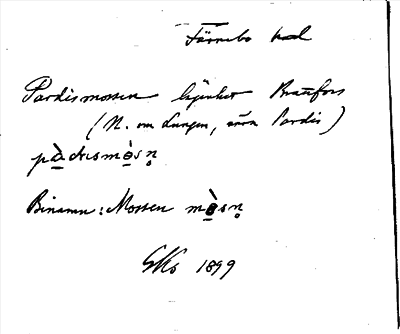 Färnebo hd
Pardismossen lägenhet Brattfors
(N. om Lungen, nära Pardis)
pàḍısmòsn̥
Binamn: Mossen mòsn̥
GKs 1899